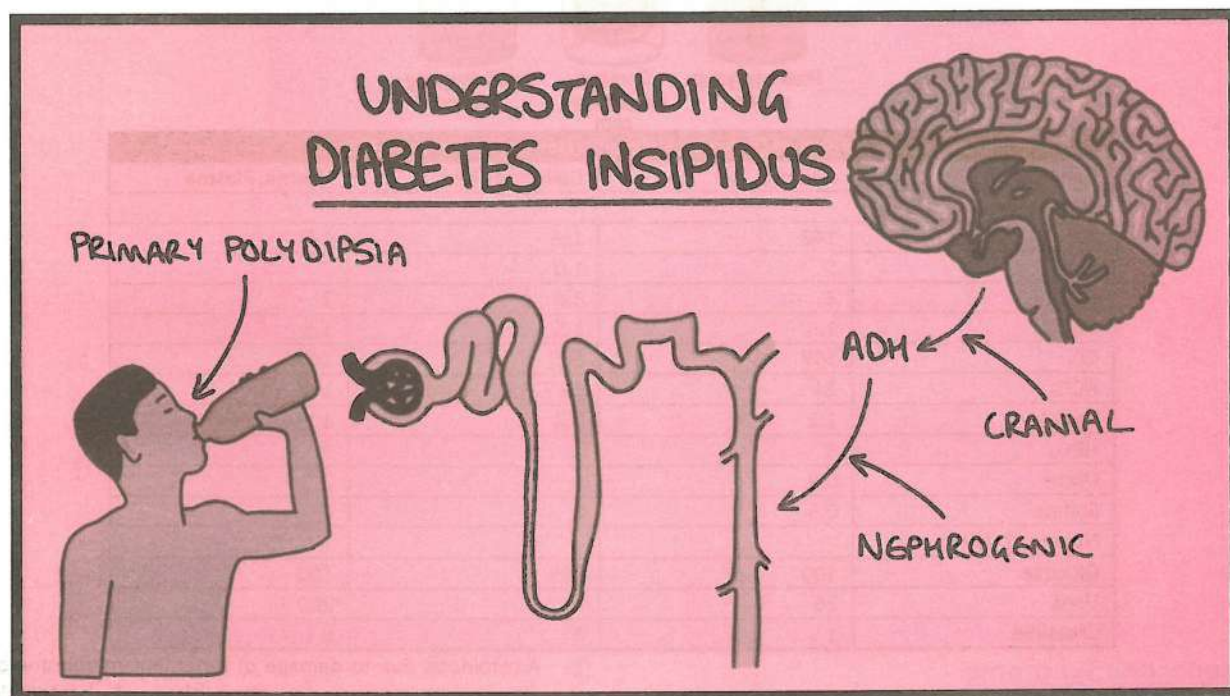 UNDERSTANDING
DIABETES INSIPIDUS
PRIMARY POLYDIPSIA
ADH
CRANIAL
NEPHROGENIC